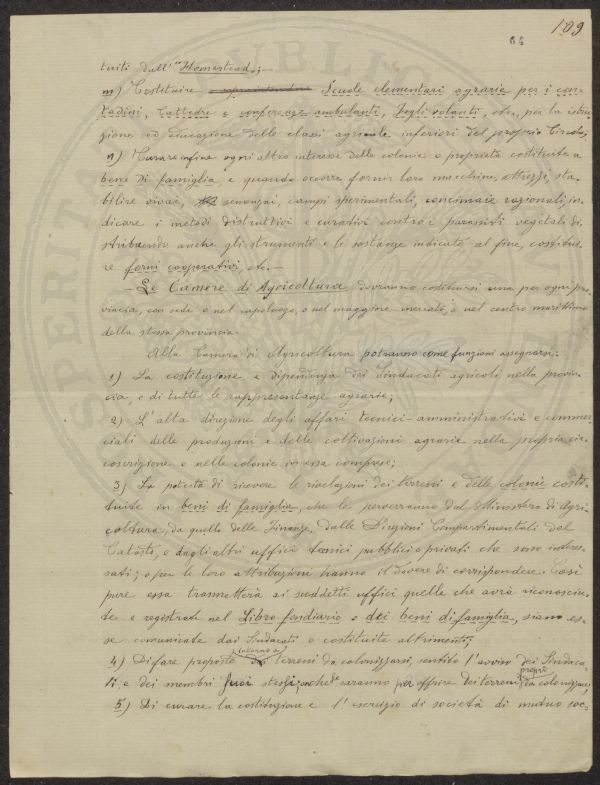 109
64
tuiti dall'"Homestead";—
m) Costituire Scuole elementari agrarie per i con-
tadini, Cattedre e conferenze ambulanti, Fogli volanti, etc, per la istru-
zione ed educazione delle classi agricole inferiori del proprio Circolo;
n) Curare infine ogni altro interesse delle colonie o proprietà costituite a
bene di famiglia, e quando occorre fornir loro macchine, attrezzi, sta-
bilire vivai, semenzai, campi sperimentali, concimaie razionali, in-
dicare i metodi distruttivi e curativi contro i parassiti vegetali di-
stribuendo anche gli strumenti e le sostanze indicate al fine, costitui-
re forni cooperativi etc.—
— Le Camere di Agricoltura dovranno costituirsi una per ogni pro-
vincia, con sede o nel capoluogo, o nel maggiore mercato, o nel centro marittimo
della stessa provincia.
Alla Camera di Agricoltura potranno come funzioni assegnarsi:
1) La costituzione e dipendenza dei Sindacati agricoli nella provin-
cia, e di tutte le rappresentanze agrarie;
2) L'alta direzione degli affari tecnici-amministrativi e commer-
ciali delle produzioni e delle coltivazioni agrarie nella propria cir-
coscrizione e nelle colonie in essa comprese;
3) La potestà di ricevere le rivelazioni dei terreni e delle colonie costi-
tuite in beni di famiglia, che le perverranno dal Ministero di Agri-
coltura, da quello delle Finanze, dalle Direzioni Compartimentali del
Catasto, e dagli altri uffici tecnici pubblici o privati che sono interes-
sati; o per le loro attribuzioni hanno il dovere di corrispondere. Così
pure essa trasmetterà ai suddetti uffici quelle che avrà riconosciu-
te e registrate nel Libro fondiario o dei beni di famiglia, siano es-
se comunicate dai Sindacati o costituite altrimenti;
4) Di fare proposte intorno a terreni da colonizzarsi, sentito l'avviso dei Sindaca-
ti e dei membri suoi stessi, che saranno per offrire dei terreni propri da colonizzare;
5) Di curare la costituzione e l'esercizio di società di mutuo soc-